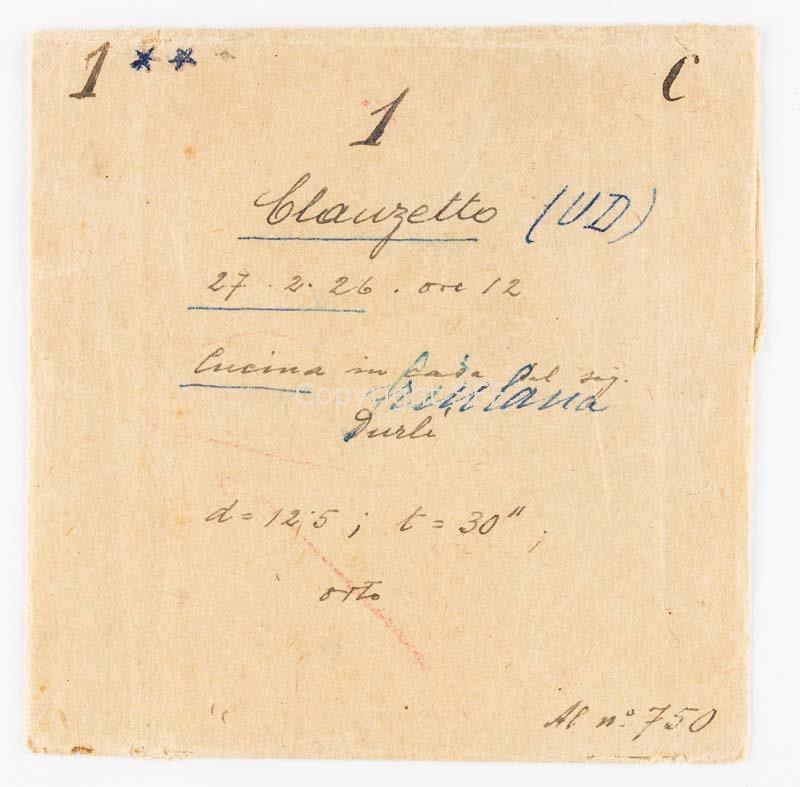 1 ** * C
1
Clauzetto (UD)
27 . 2 . 26 . ore 12
Cucina in casa del sig.
Durli
d = 12.5 ; t = 30" ;
orto
Al nº 750